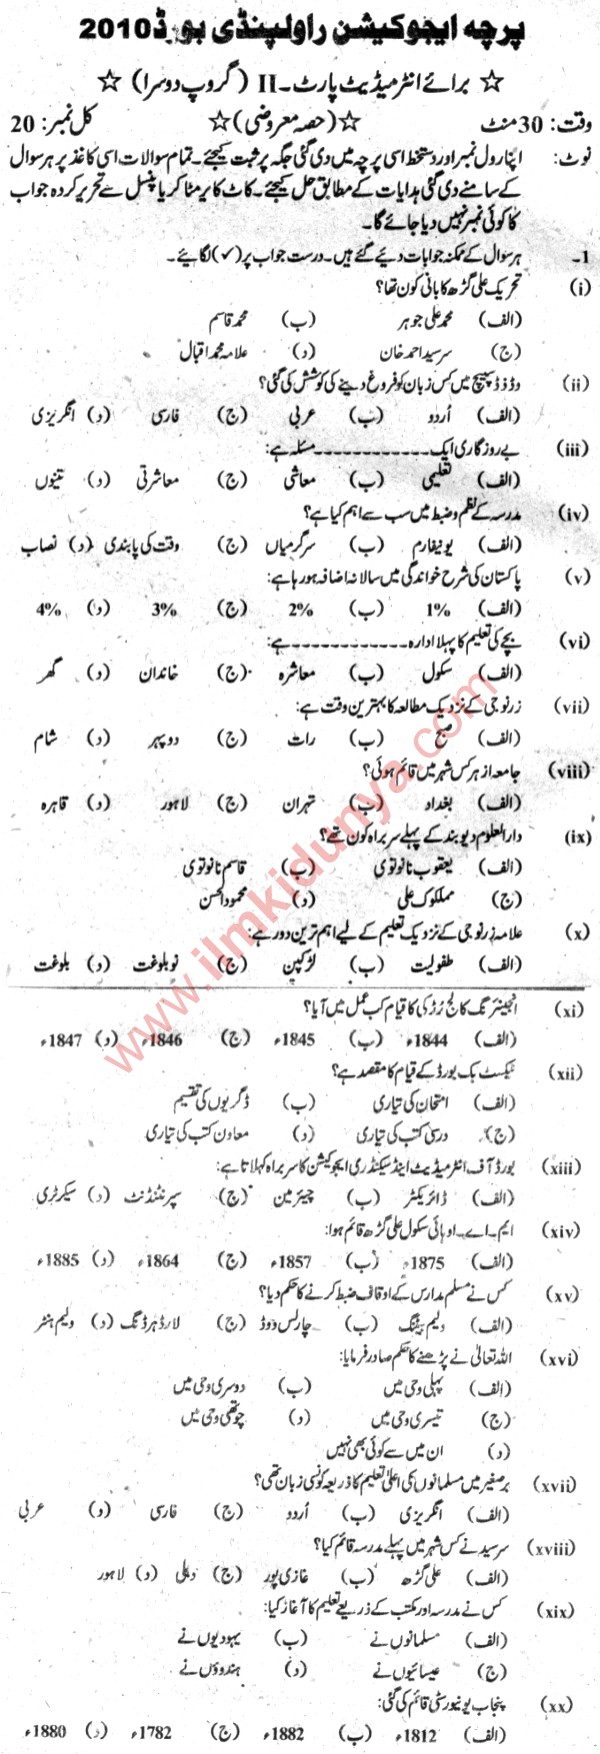 پرچہ ایجوکیشن راولپنڈی بورڈ 2010
☆ برائے انٹرمیڈیٹ پارٹ۔ II (گروپ دوسرا) ☆
وقت: 30 منٹ ☆(حصہ معروضی)☆ کل نمبر: 20
نوٹ: اپنا رول نمبر اور دستخط اسی پرچہ میں دی گئی جگہ پر ثبت کیجئے۔ تمام سوالات اسی کاغذ پر ہر سوال
کے سامنے دی گئی ہدایات کے مطابق حل کیجئے۔ کاٹ کا یر مٹا کر یا پنسل سے تحریر کردہ جواب
کا کوئی نمبر نہیں دیا جائے گا۔
1۔ ہر سوال کے ممکنہ جوابات دیئے گئے ہیں۔ درست جواب پر (✓) لگائیے۔
(i) تحریک علی گڑھ کا بانی کون تھا؟
(الف) محمد علی جوہر (ب) محمد قاسم
(ج) سرسید احمد خان (د) علامہ محمد اقبال
(ii) وڈذ ڈسپیچ میں کس زبان کو فروغ دینے کی کوشش کی گئی؟
(الف) اُردو (ب) عربی (ج) فارسی (د) انگریزی
(iii) بے روزگاری ایک ------------ مسئلہ ہے:
(الف) تعلیمی (ب) معاشی (ج) معاشرتی (د) تینوں
(iv) مدرسہ کے نظم و ضبط میں سب سے اہم کیا ہے؟
(الف) یونیفارم (ب) سرگرمیاں (ج) وقت کی پابندی (د) نصاب
(v) پاکستان کی شرح خواندگی میں سالانہ اضافہ ہو رہا ہے:
(الف) 1% (ب) 2% (ج) 3% (د) 4%
(vi) بچے کی تعلیم کا پہلا ادارہ ------------ ہے:
(الف) سکول (ب) معاشرہ (ج) خاندان (د) گھر
(vii) زرنوجی کے نزدیک مطالعہ کا بہترین وقت ہے:
(الف) صبح (ب) رات (ج) دوپہر (د) شام
(viii) جامعہ ازہر کس شہر میں قائم ہوئی؟
(الف) بغداد (ب) تہران (ج) لاہور (د) قاہرہ
(ix) دارالعلوم دیوبند کے پہلے سربراہ کون تھے؟
(الف) یعقوب نانوتوی (ب) قاسم نانوتوی
(ج) مملکوک علی (د) محمود الحسن
(x) علامہ زرنوجی کے نزدیک تعلیم کے لیے اہم ترین دور ہے:
(الف) طفولیت (ب) لڑکپن (ج) نوبلوغت (د) بلوغت
(xi) انجینئرنگ کالج رُڑکی کا قیام کب عمل میں آیا؟
(الف) 1844ء (ب) 1845ء (ج) 1846ء (د) 1847ء
(xii) ٹیکسٹ بک بورڈ کے قیام کا مقصد ہے؟
(الف) امتحان کی تیاری (ب) ڈگریوں کی تقسیم
(ج) درسی کتب کی تیاری (د) معاون کتب کی تیاری
(xiii) بورڈ آف انٹرمیڈیٹ اینڈ سیکنڈری ایجوکیشن کا سربراہ کہلاتا ہے:
(الف) ڈائریکٹر (ب) چیئرمین (ج) سپرنٹنڈنٹ (د) سیکرٹری
(xiv) ایم۔اے۔او ہائی سکول علی گڑھ قائم ہوا:
(الف) 1875ء (ب) 1857ء (ج) 1864ء (د) 1885ء
(xv) کس نے مسلم مدارس کے اوقاف ضبط کرنے کا حکم دیا؟
(الف) ولیم بیٹنگ (ب) چارلس ووڈ (ج) لارڈ ہرڈنگ (د) ولیم ہنٹر
(xvi) اللہ تعالیٰ نے پڑھنے کا حکم صادر فرمایا:
(الف) پہلی وحی میں (ب) دوسری وحی میں
(ج) تیسری وحی میں (د) چوتھی وحی میں
(د) ان میں سے کوئی بھی نہیں
(xvii) برصغیر میں مسلمانوں کی اعلیٰ تعلیم کا ذریعہ کونسی زبان تھی؟
(الف) انگریزی (ب) اُردو (ج) فارسی (د) عربی
(xviii) سرسید نے کس شہر میں پہلے مدرسہ قائم کیا؟
(الف) علی گڑھ (ب) غازی پور (ج) دہلی (د) لاہور
(xix) کس نے مدرسہ اور مکتب کے ذریعے تعلیم کا آغاز کیا:
(الف) مسلمانوں نے (ب) یہودیوں نے
(ج) عیسائیوں نے (د) ہندوؤں نے
(xx) پنجاب یونیورسٹی قائم کی گئی:
(الف) 1812ء (ب) 1882ء (ج) 1782ء (د) 1880ء
www.ilmkidunya.com